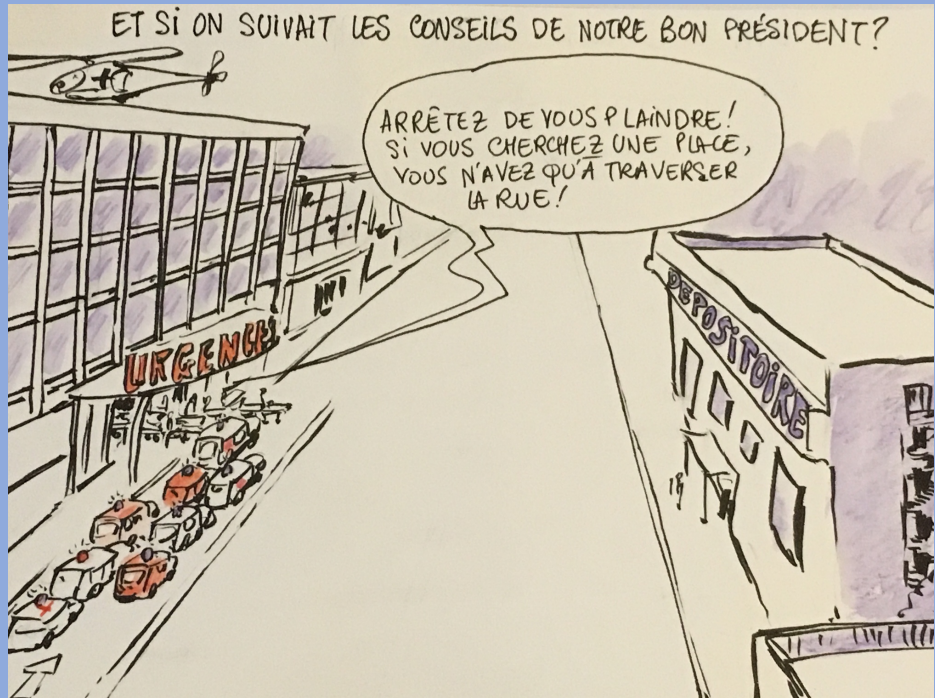 ET SI ON SUIVAIT LES CONSEILS DE NOTRE BON PRÉSIDENT?
ARRÊTEZ DE VOUS PLAINDRE!
SI VOUS CHERCHEZ UNE PLACE,
VOUS N'AVEZ QU'À TRAVERSER
LA RUE!
URGENCES
DEPOSITOIRE